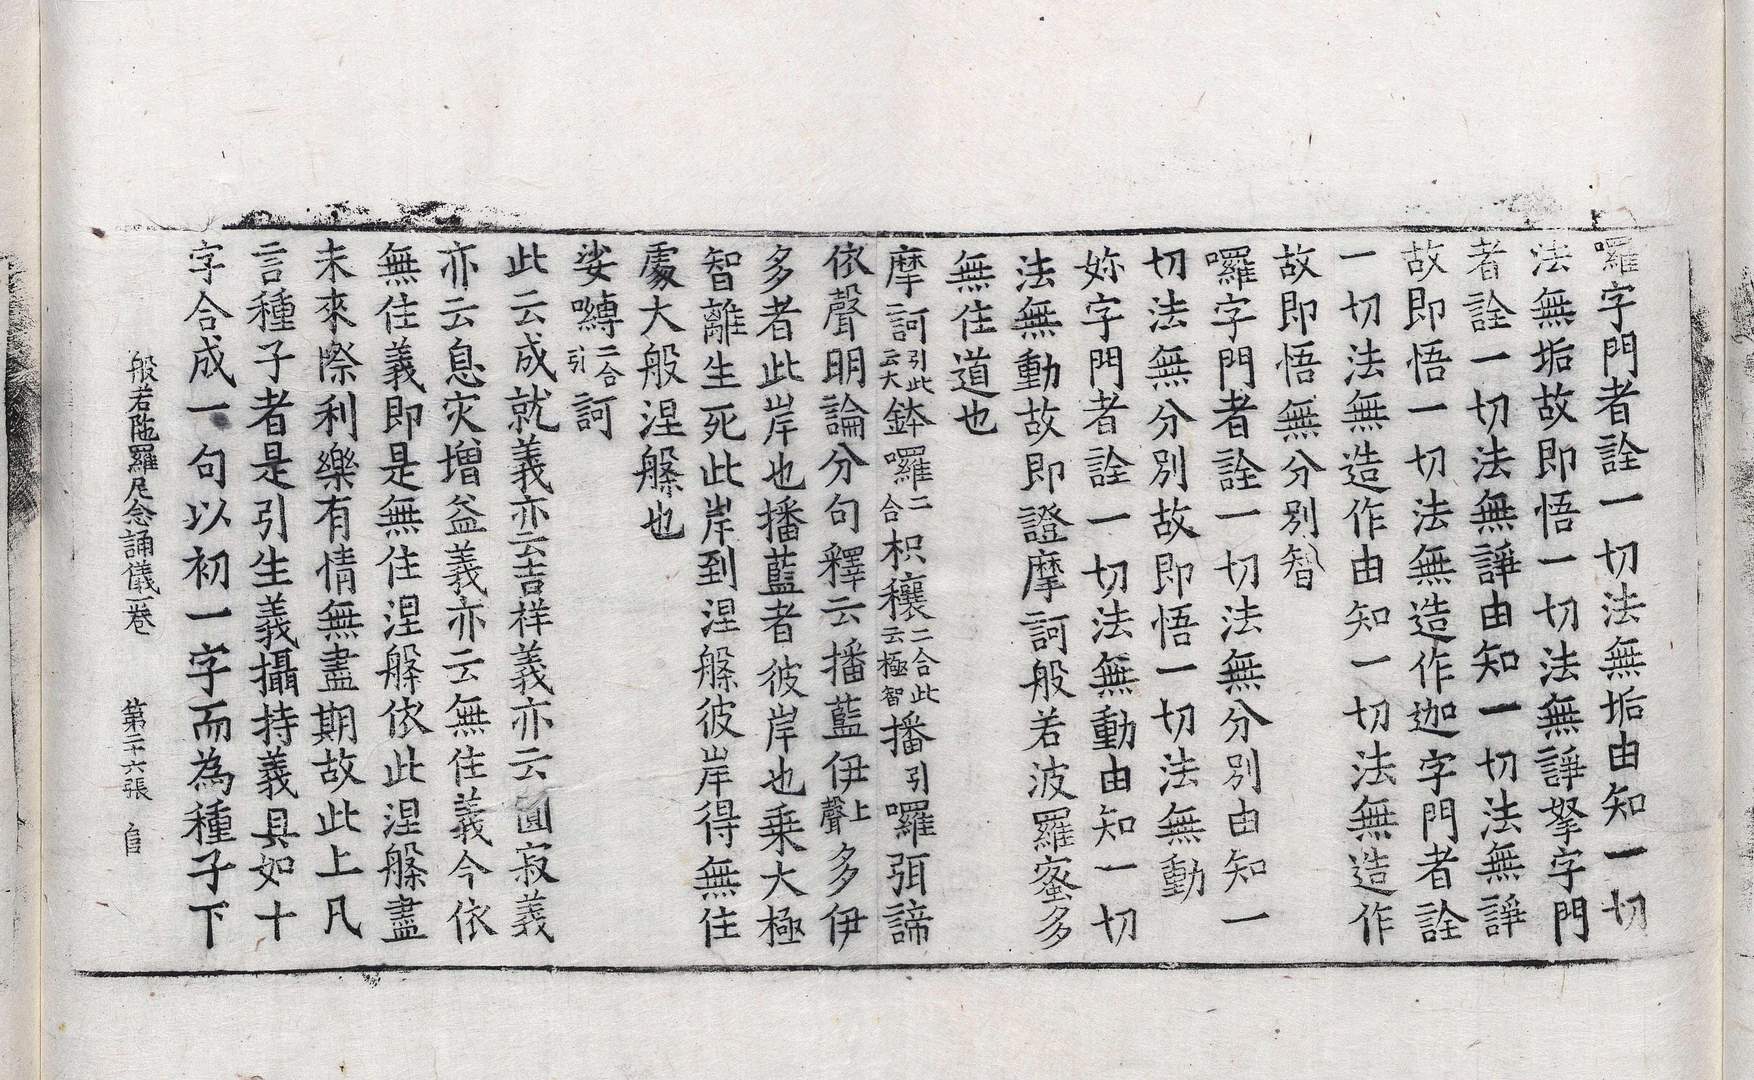 囉字門者詮一切法無垢由知一切
法無垢故即悟一切法無諍拏字門
者詮一切法無諍由知一切法無諍
故即悟一切法無造作迦字門者詮
一切法無造作由知一切法無造作
故即悟無分別智
囉字門者詮一切法無分別由知一
切法無分別故即悟一切法無動
妳字門者詮一切法無動由知一切
法無動故即證摩訶般若波羅蜜多
無住道也
摩訶引此云大鉢囉二合枳穰二合此云極智播引囉弭諦
依聲明論分句釋云播藍伊上聲多伊
多者此岸也播藍者彼岸也乗大極
智離生死此岸到涅槃彼岸得無住
處大般涅槃也
娑嚩二合引訶
此云成就義亦云吉祥義亦云圓寂義
亦云息災增益義亦云無住義今依
無住義即是無住涅槃依此涅槃盡
未來際利樂有情無盡期故此上凡
言種子者是引生義攝持義且如十
字合成一句以初一字而為種子下
般若陁羅尼念誦儀一卷 第二十六張 自